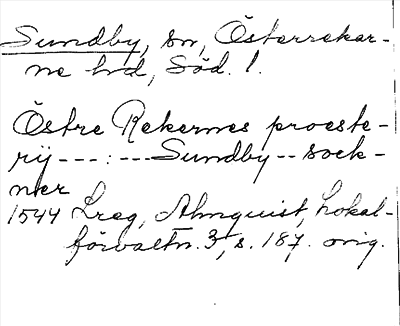 Sundby, sn, Österrekar-
ne hd, Söd. l.
Östre Rekernes proeste-
rij---:---Sundby--sock-
ner
1544 Lreg, Almquist, Lokal-
förvaltn. 3, s. 187. orig.